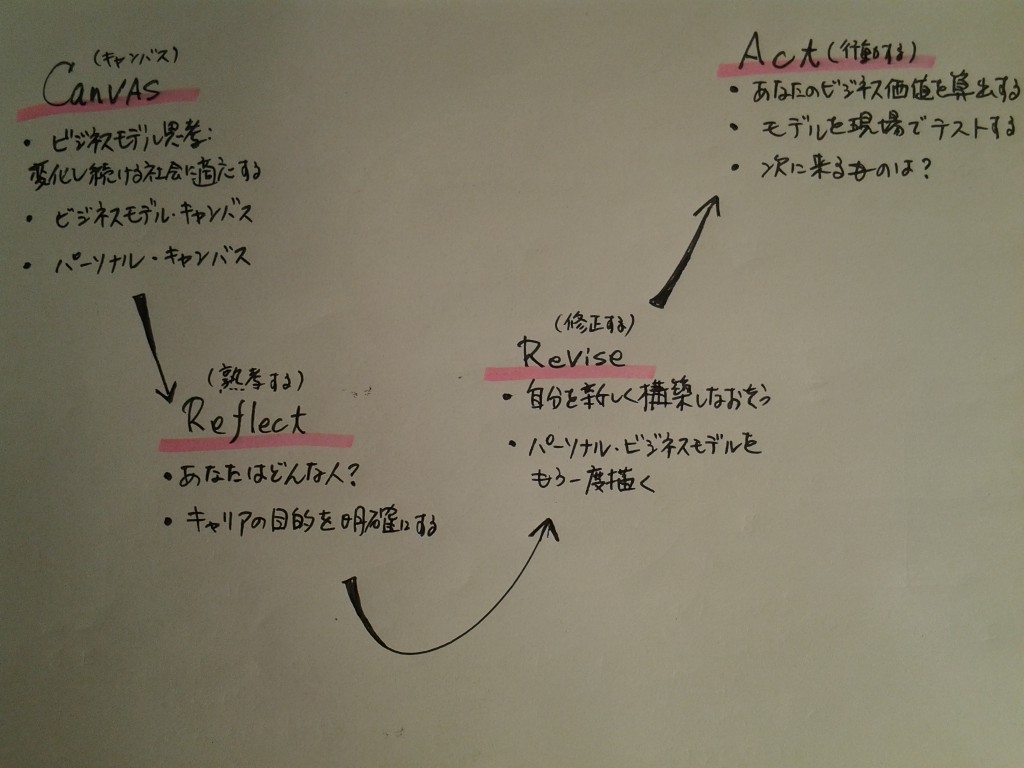 (キャンバス)
CanVAS
・ビジネスモデル思考:
変化し続ける社会に適応する
・ビジネスモデル・キャンバス
・パーソナル・キャンバス
(熟考する)
Reflect
・あなたはどんな人?
・キャリアの目的を明確にする
(修正する)
Revise
・自分を新しく構築しなおそう
・パーソナル・ビジネスモデルを
もう一度描く
Act(行動する)
・あなたのビジネス価値を算出する
・モデルを現場でテストする
・次に来るものは?